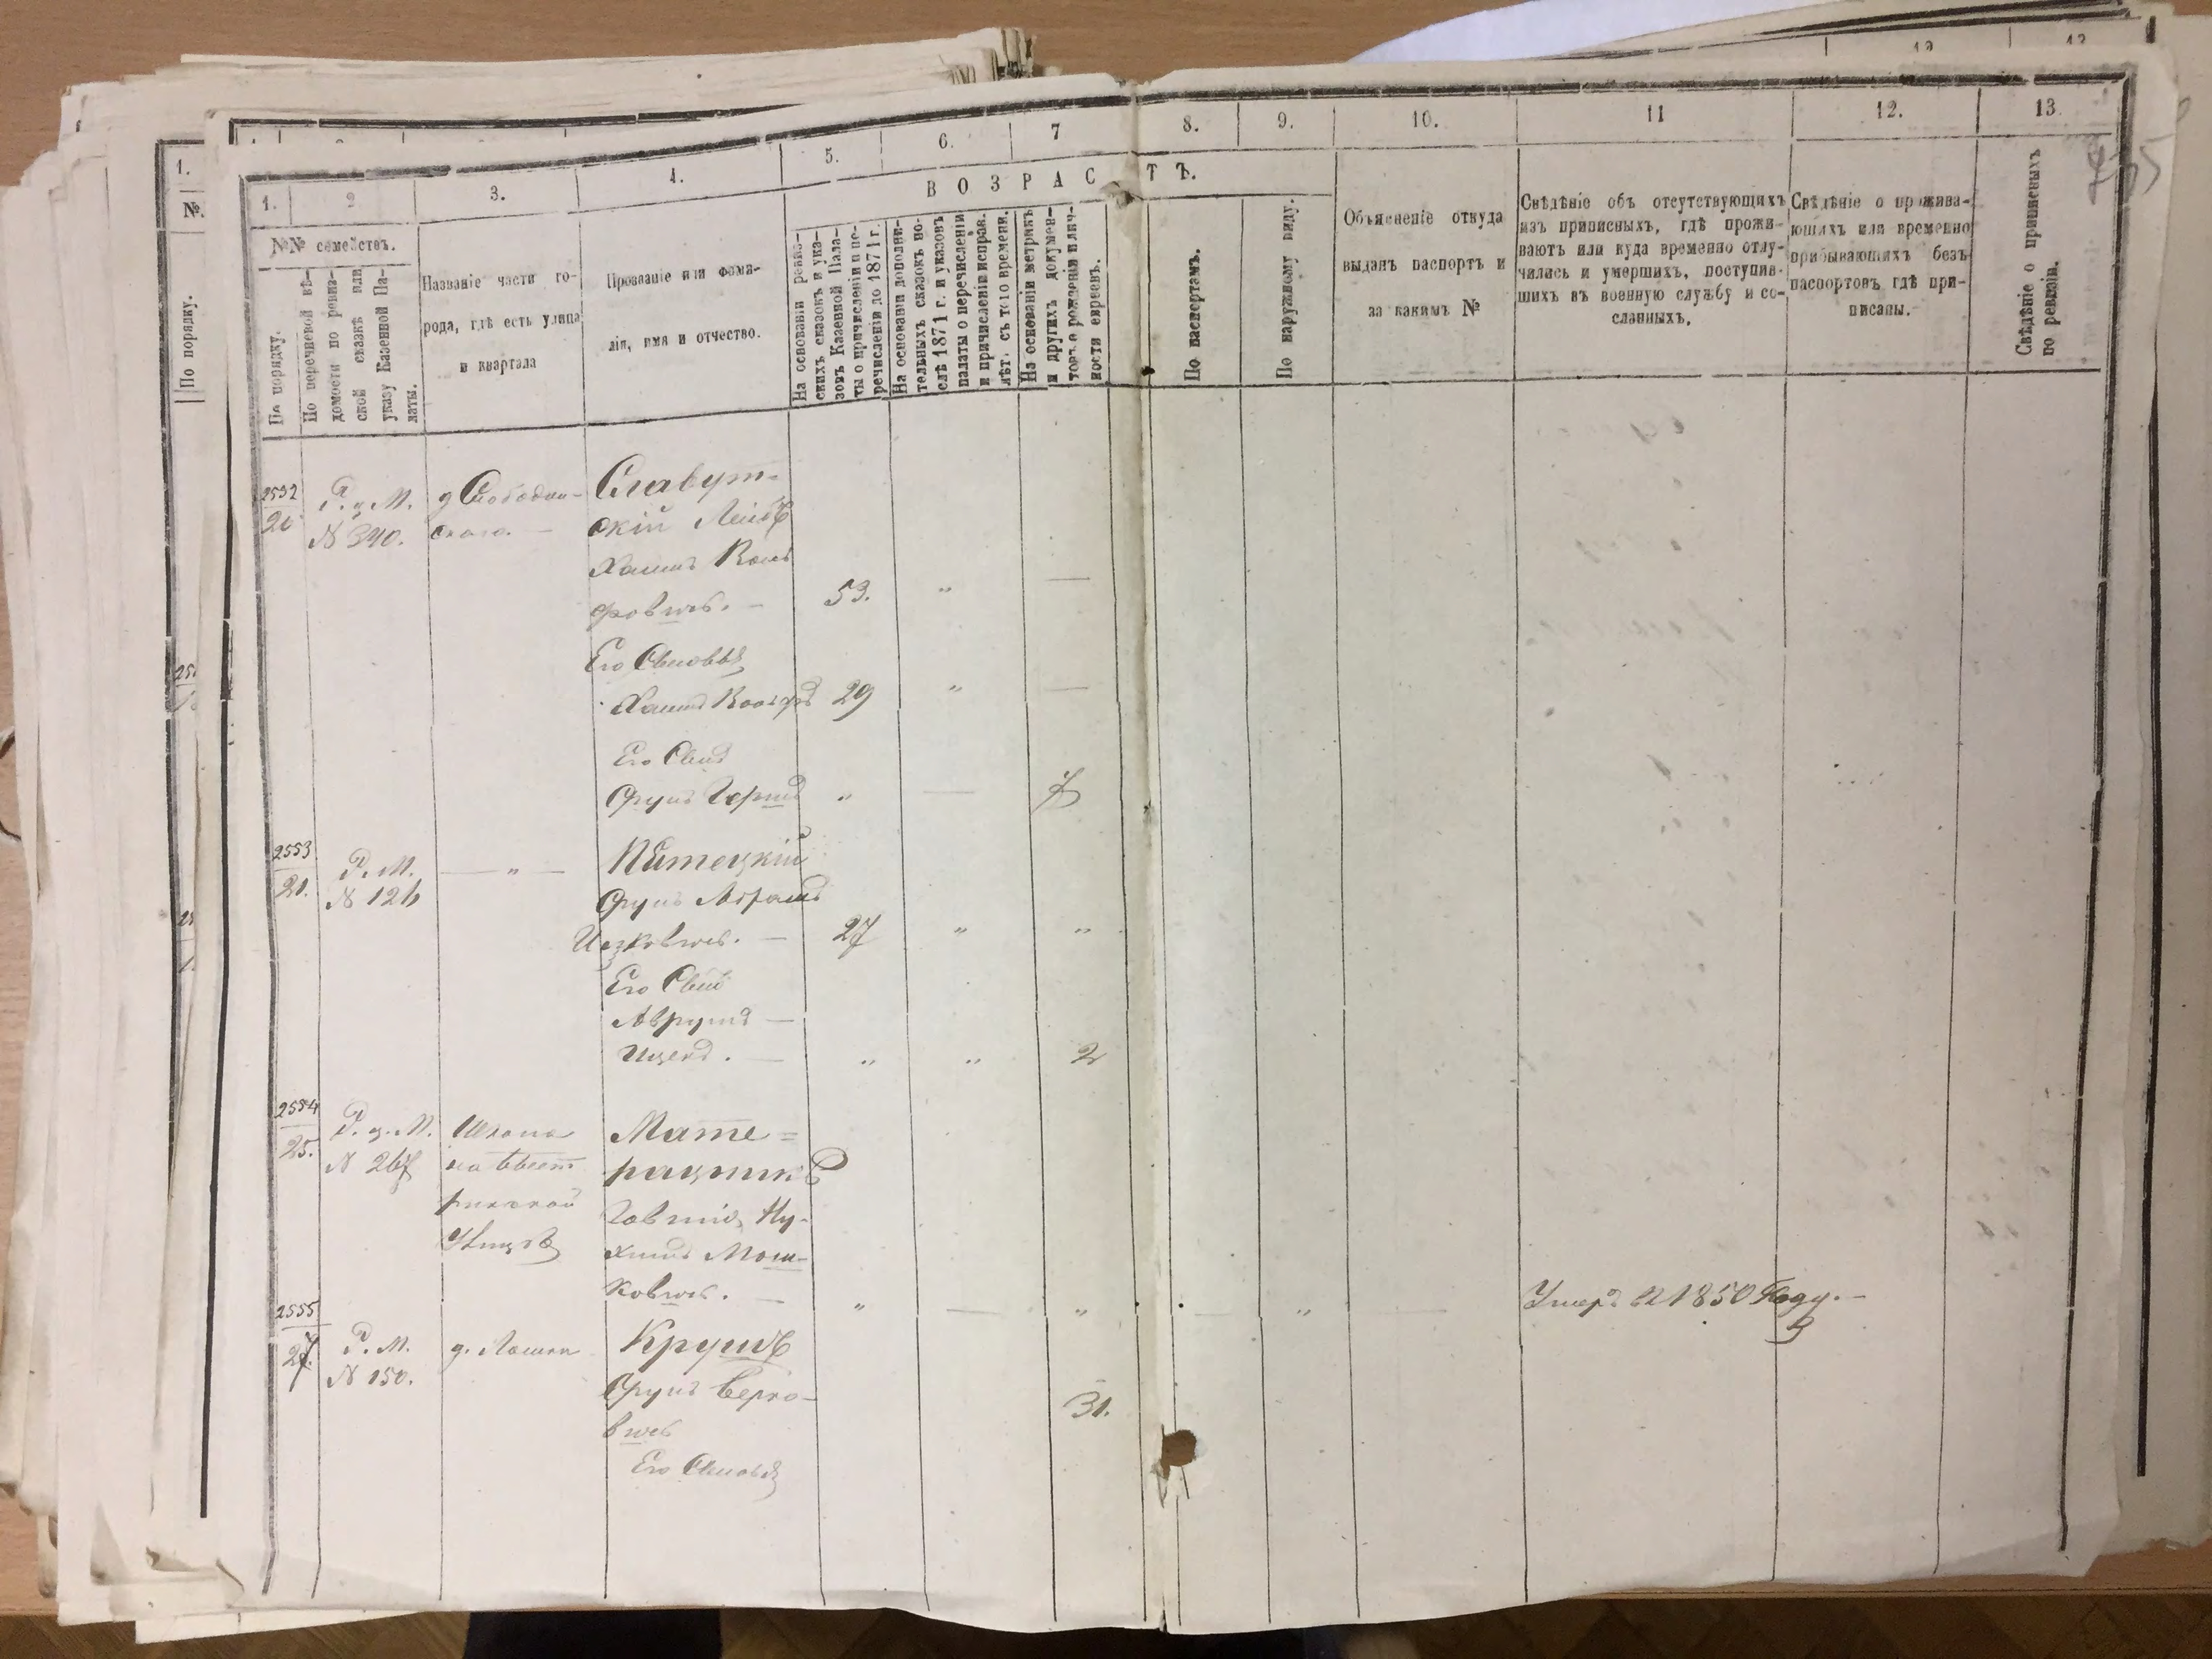 1.
№.
По порядку.
12
13
1.
2
3.
4.
5.
6.
7
8.
9.
10.
11
12.
13.
ВОЗРАСТЪ.
№№ семействъ.
По порядку.
По перечневой вѣ-
домости по ревиз-
ской сказкѣ или
указу Казенной Па-
латы.
Названіе части го-
рода, гдѣ есть улица
и квартала
Прозваніе или фами-
лія, имя и отчество.
На основаніи ревиз-
скихъ сказокъ и ука-
зовъ Казенной Пала-
ты о причисленіи и пе-
речисленіи до 1871 г.
На основаніи дополни-
тельныхъ сказокъ по-
слѣ 1871 г. и указовъ
палаты о перечисленіи
и причисленіи исправ.
лѣт. съ того времени.
На основаніи метрикъ
и другихъ докумен-
товъ о рожденіи и лич-
ности евреевъ.
По паспортамъ.
По наружному виду.
Объясненіе откуда
выданъ паспортъ и
за какимъ №
Свѣдѣніе объ отсутствующихъ
изъ приписныхъ, гдѣ прожи-
ваютъ или куда временно отлу-
чились и умершихъ, поступив-
шихъ въ военную службу и со-
сланныхъ.
Свѣдѣніе о прожива-
ющихъ или временно
прибывающихъ безъ
паспортовъ гдѣ при-
писаны.
Свѣдѣніе о приписныхъ
по ревизіи.
2532
Р. ц. М.
№ 390.
д Слободзи-
Славут-
скій Лейбъ
Хаимъ Воль
фовичъ. — 53. " —
Его Сыновья
Хаимъ Вольфъ 29 " —
Его Сынъ
Срулъ Гершъ " — 7
2553
21.
Р. М.
№ 126
— " —
Питецкій
Срулъ Абрамъ
Ицковичъ. — 27 " "
Его Сынъ
Аврумъ —
Ицекъ. — " " 2
2554
25.
Р. ц. М.
№ 267
Школа
Мате=
рацникъ
Мош-
ковичъ. — " — " — " —
Умеръ въ 1850 Году. —
2555
27.
Р. М.
№ 150.
Крушъ
Срулъ Берко-
вичъ 31.
Его Сыновья